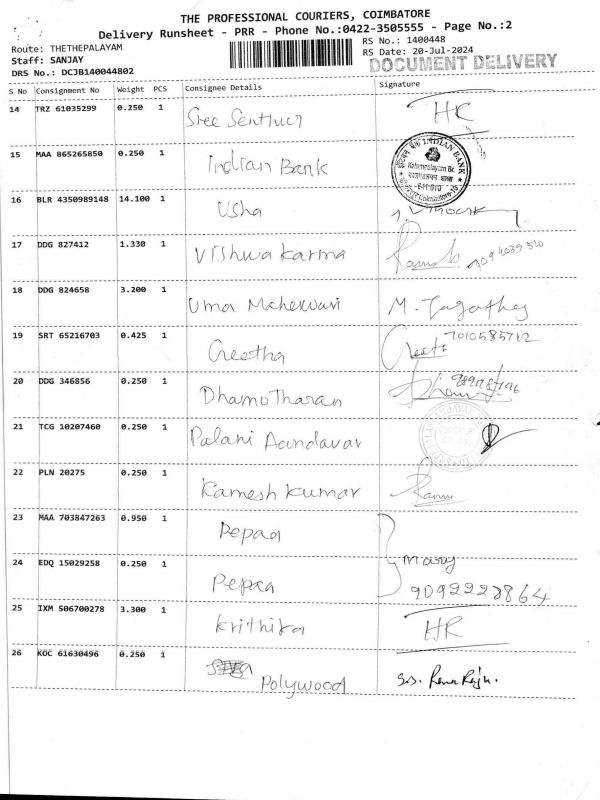 THE PROFESSIONAL COURIERS, COIMBATORE
Delivery Runsheet - PRR - Phone No.:0422-3505555 - Page No.:2
Route: THETHEPALAYAM
RS No.: 1400448
Staff: SANJAY
RS Date: 20-Jul-2024
DRS No.: DCJB140044802
DOCUMENT DELIVERY
S No Consignment No Weight PCS Consignee Details Signature
14 TRZ 61035299 0.250 1 Sree Senthur HR
15 MAA 865265850 0.250 1 Indian Bank INDIAN BANK
16 BLR 4350989148 14.100 1 Usha
17 DDG 827412 1.330 1 Vishwakarma
18 DDG 824658 3.200 1 Uma Maheswari M.
19 SRT 65216703 0.425 1 Geetha 7010585712
20 DDG 346856 0.250 1 Dhamotharan
21 TCG 10207460 0.250 1 Palani Aandavar
22 PLN 20275 0.250 1 Kamesh kumar
23 MAA 703847263 0.950 1 Pepaa
24 EDQ 15029258 0.250 1 Pepaa
9092227864
25 IXM 506700278 3.300 1 Krithika HR
26 KOC 61630496 0.250 1 Polywood S.S.